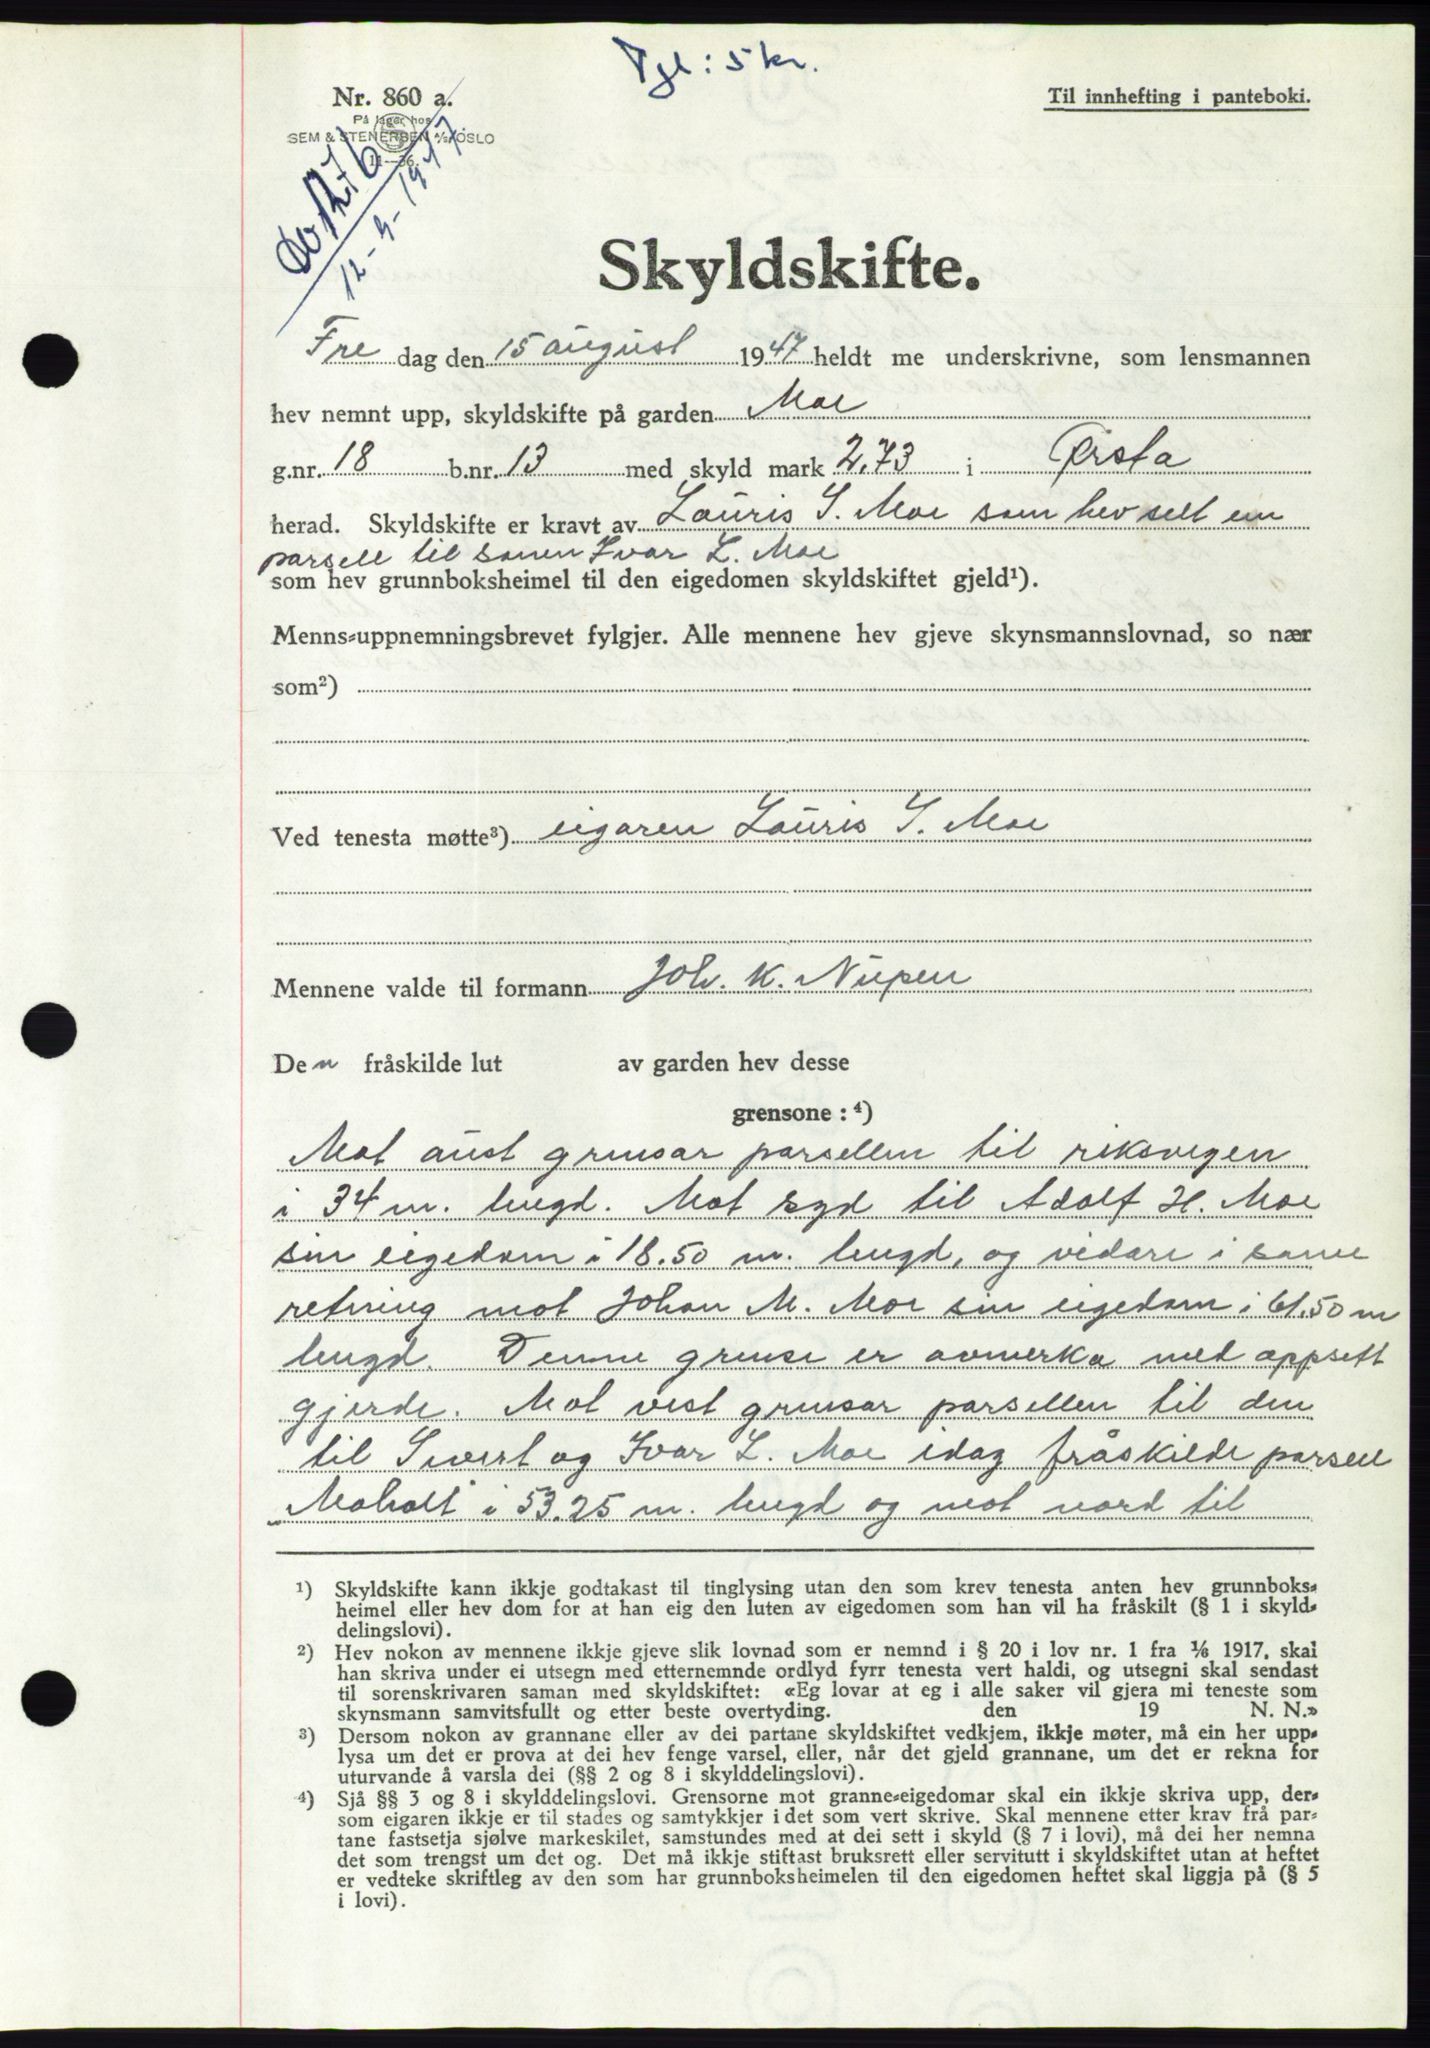 Tgl: 5 kr.
Nr. 860 a.
Til innhefting i panteboki.
På lager hos
SEM & STENERSEN A/S OSLO
11—36.
12-9-1947.
Skyldskifte.
Fre dag den 15 august 1947 heldt me underskrivne, som lensmannen
hev nemnt upp, skyldskifte på garden Moe
g.nr. 18 b.nr. 13 med skyld mark 2,73 i Ørsta
herad. Skyldskifte er kravt av Lauris S. Moe som hev selt ein
parsell til sonen Ivar L. Moe
som hev grunnboksheimel til den eigedomen skyldskiftet gjeld¹).
Menns-uppnemningsbrevet fylgjer. Alle mennene hev gjeve skynsmannslovnad, so nær
som²)
Ved tenesta møtte³) eigaren Lauris S. Moe
Mennene valde til formann Joh. K. Nupen
Den fråskilde lut av garden hev desse
grensone: ⁴)
Mot aust grensar parsellen til riksvegen
i 34 m. lengd. Mot syd til Adolf H. Moe
sin eigedom i 18.50 m. lengd, og vidare i same
retning mot Johan M. Moe sin eigedom i 61.50 m
lengd. Denne grense er avmerka med oppsett
gjerde. Mot vest grensar parsellen til den
til Sivert og Ivar L. Moe idag fråskilde parsell
„Moholt" i 53.25 m. lengd og mot nord til
¹) Skyldskifte kann ikkje godtakast til tinglysing utan den som krev tenesta anten hev grunnboks-
heimel eller hev dom for at han eig den luten av eigedomen som han vil ha fråskilt (§ 1 i skyld-
delingslovi).
²) Hev nokon av mennene ikkje gjeve slik lovnad som er nemnd i § 20 i lov nr. 1 fra ⅛ 1917, skal
han skriva under ei utsegn med etternemnde ordlyd fyrr tenesta vert haldi, og utsegni skal sendast
til sorenskrivaren saman med skyldskiftet: «Eg lovar at eg i alle saker vil gjera mi teneste som
skynsmann samvitsfullt og etter beste overtyding. den 19 N. N.»
³) Dersom nokon av grannane eller av dei partane skyldskiftet vedkjem, ikkje møter, må ein her upp-
lysa um det er prova at dei hev fenge varsel, eller, når det gjeld grannane, um det er rekna for
uturvande å varsla dei (§§ 2 og 8 i skylddelingslovi).
⁴) Sjå §§ 3 og 8 i skylddelingslovi. Grensorne mot granne-eigedomar skal ein ikkje skriva upp, der-
som eigaren ikkje er til stades og samtykkjer i det som vert skrive. Skal mennene etter krav frå par-
tane fastsetja sjølve markeskilet, samstundes med at dei sett i skyld (§ 7 i lovi), må dei her nemna
det som trengst um det og. Det må ikkje stiftast bruksrett eller servitutt i skyldskiftet utan at heftet
er vedteke skriftleg av den som har grunnboksheimelen til den eigedomen heftet skal liggja på (§ 5
i lovi).